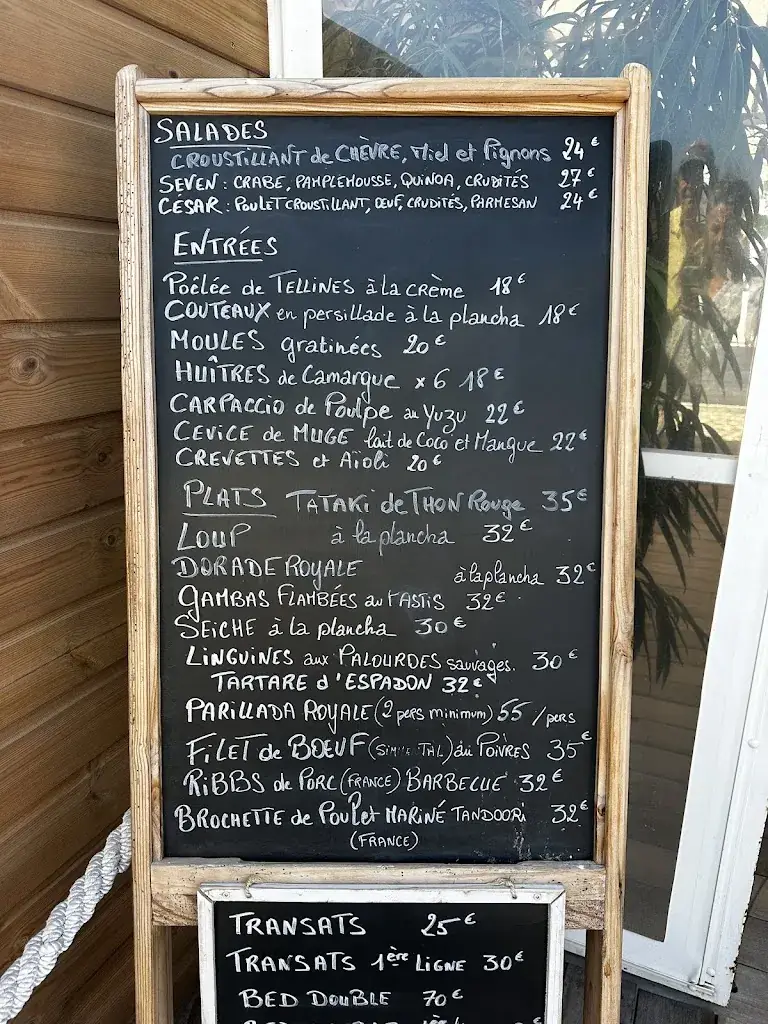 SALADES
CROUSTILLANT de CHÈVRE, Miel et Pignons 24€
SEVEN : CRABE, PAMPLEMOUSSE, QUINOA, CRUDITÉS 27€
CÉSAR : POULET CROUSTILLANT, OEUF, CRUDITÉS, PARMESAN 24€
ENTRÉES
Poêlée de TELLINES à la crème 18€
COUTEAUX en persillade à la plancha 18€
MOULES gratinées 20€
HUÎTRES de Camargue x 6 18€
CARPACCIO de Poulpe au Yuzu 22€
CEVICE de MUGE lait de Coco et Mangue 22€
CREVETTES et Aïoli 20€
PLATS TATAKI de THON Rouge 35€
LOUP à la plancha 32€
DORADE ROYALE à la plancha 32€
GAMBAS FLAMBÉES au PASTIS 32€
SEICHE à la plancha 30€
LINGUINES aux PALOURDES sauvages. 30€
TARTARE d'ESPADON 32€
PARILLADA ROYALE (2 pers minimum) 55 /pers
FILET de BOEUF au POIVRES 35€
RIBBS de PORC (FRANCE) BARBECUE 32€
BROCHETTE de Poulet MARINÉ TANDOORI 32€
(FRANCE)
TRANSATS 25€
TRANSATS 1ère LIGNE 30€
BED DOUBLE 70€